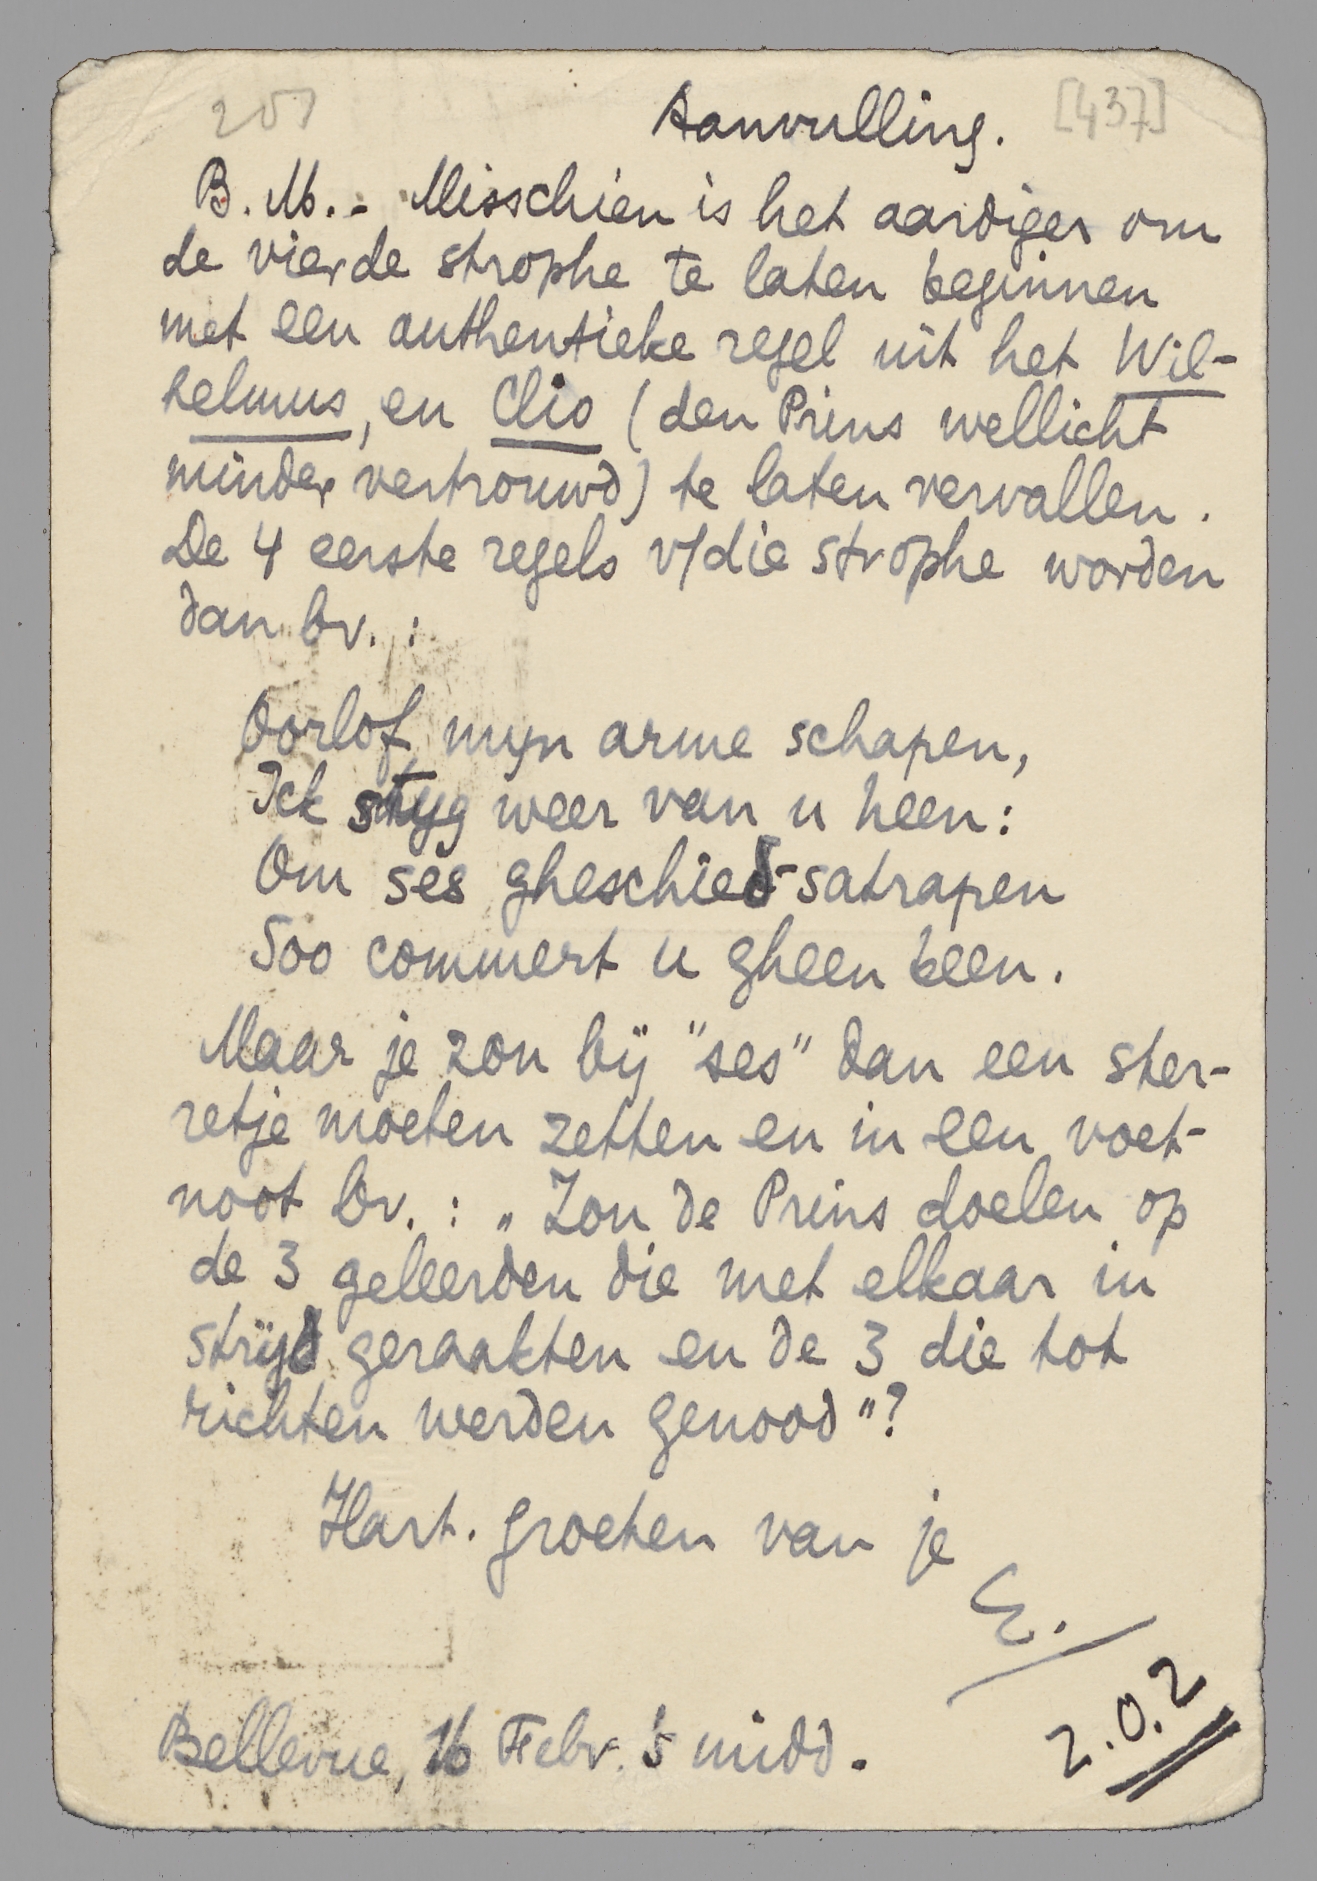 201 Aanvulling. [437]
B. M. - Misschien is het aardiger om
de vierde strophe te laten beginnen
met een authentieke regel uit het Wil-
helmus, en Clio (den Prins wellicht
minder vertrouwd) te laten vervallen.
De 4 eerste regels v/die strophe worden
dan bv. :
Oorlof mijn arme schapen,
Ick styg weer van u heen:
Om ses gheschied-satrapen
Soo commert u gheen been.
Maar je zou bij "ses" dan een ster-
retje moeten zetten en in een voet-
noot bv. : „Zou de Prins doelen op
de 3 geleerden die met elkaar in
strijd geraakten en de 3 die tot
richten werden genood"?
Hart. groeten van je
E.
Bellevue, 16 Febr. 's midd.
2.0.2